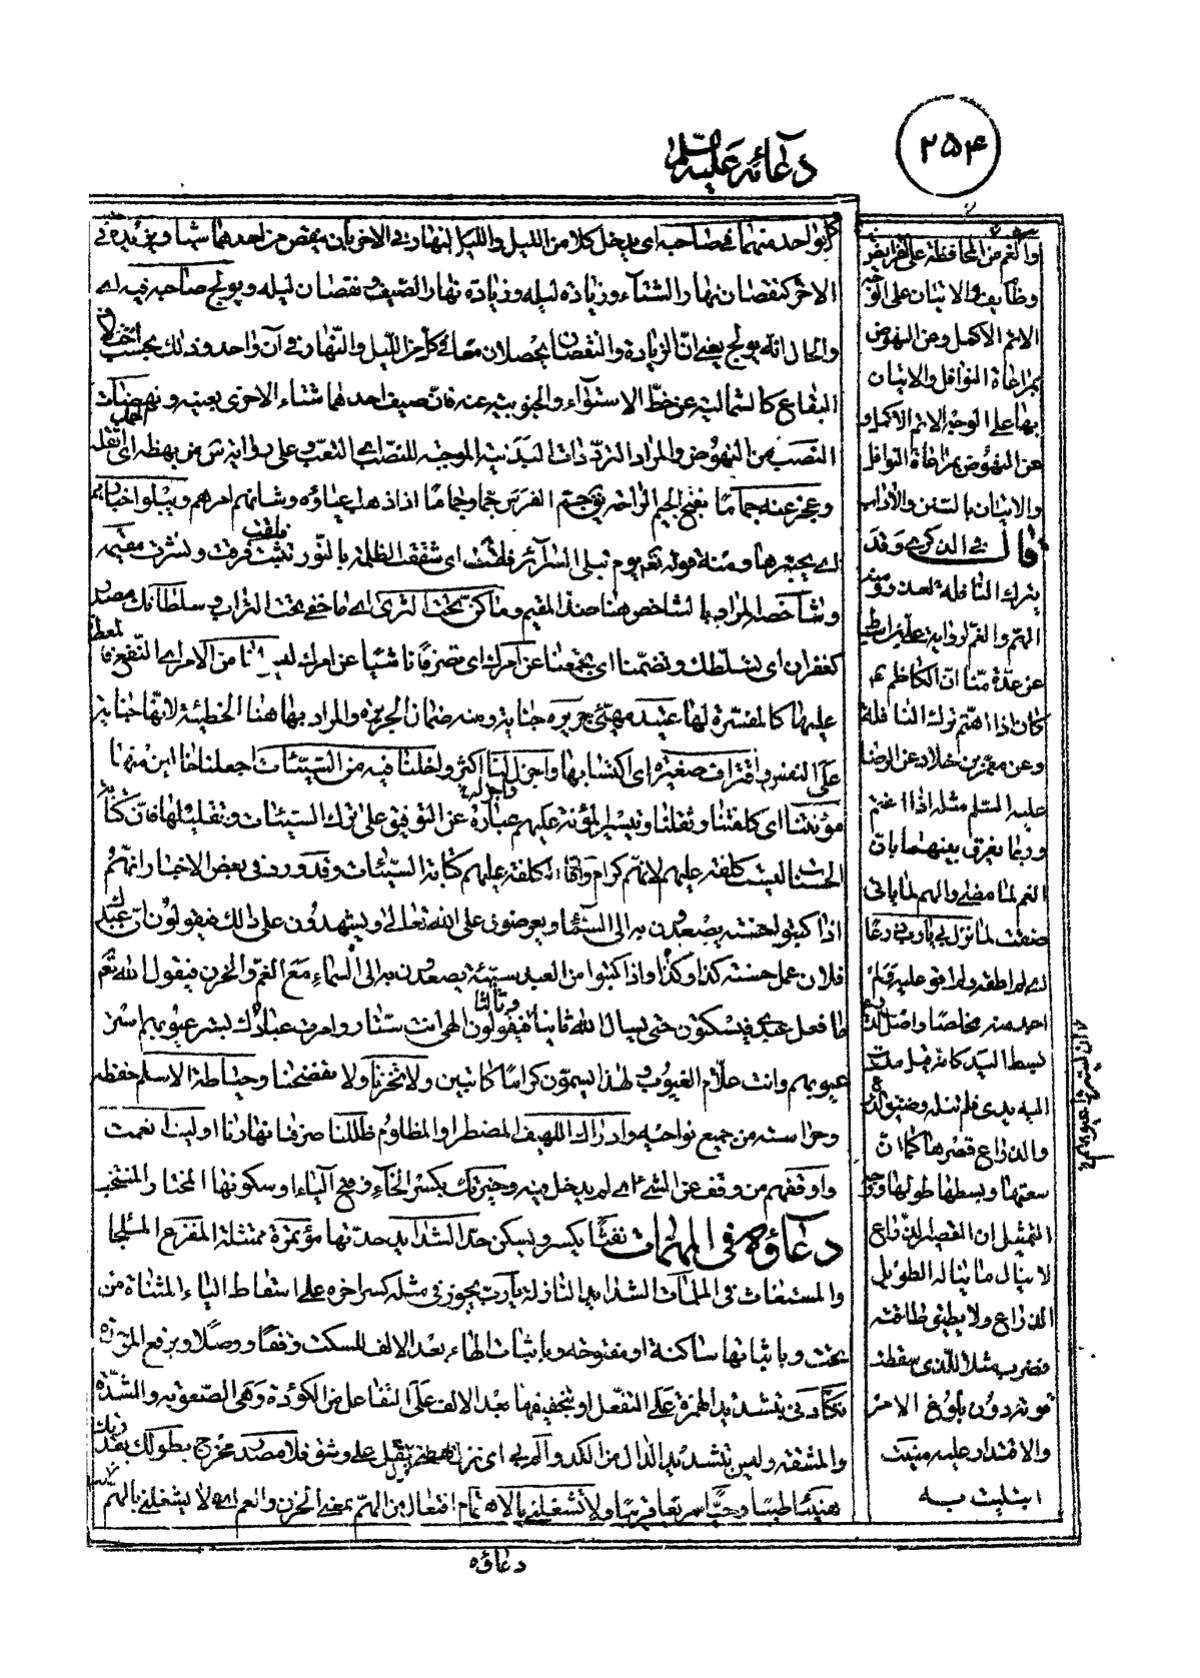 ۲۵۴
دعائه علیه السلم
كل واحد منهما في صاحبه اى يدخل كلا من الليل والليل النهار في الاخر بأن ينقص من احدهما شيئا ويزيده في
الاخر كنقصان نهار الشتاء وزيادة ليله وزيادة نهار الصيف ونقصان ليله ويولج صاحبه فيه اى
والحال انه يولج يعنى ان الزيادة والنقصان يحصلان معا في كل من الليل والنهار في آن واحد وذلك بحسب اختلاف
البقاع كالشمالية عن خط الاستواء والجنوبية عنه فان صيف احدهما شتاء الاخرى بعينه ونهضات
النصب من النهوض والمراد الترددات البدنية الموجبة للنصب اى التعب على رواية س من بهظه اى اثقله
وعجز عنه جماما بفتح الجيم الراحة يق جم الفرس جما وجماما اذا ذهب اعياؤه وشانهم امرهم ويبلو اخبارهم
اى يختبرها ومنه قوله تعم يوم تبلى السرآئر فلقت اى شققت الظلمة بالنور نبثت فرقت ونشرت مقيمه
وشاخصه المراد بالشاخص هنا ضد المقيم وما كن تحت الثرى اى ما خفى تحت التراب وسلطانك مصدر
كغفران اى تسلطك وتضمنا اى يجمعنا عن امرك اى تصرفا ناشئا عن امرك ليس لنا من الامر اى النفع
عليها كالمفسرة لها عتيد مهيئ جريرة جناية ومنه ضمان الجريرة والمراد بها هنا الخطيئة لانها جناية
على النفس واقتراف صغيرة اى اكتسابها واجزل لنا اكثر واخلنا فيه من السيئات اجعلنا خالين منها
مؤنتنا اى كلفتنا وثقلنا وتيسير المؤنة عليهم عبارة عن التوفيق على ترك السيئات وتقليلها فان كتابة
الحسنات ليست كلفة عليهم لانهم كرام وانما الكلفة عليهم كتابة السيئات وقد ورد في بعض الاخبار انهم
اذا كتبوا حسنة يصعدون به الى السماء ويعرضون على الله تعالى ويشهدون على ذلك فيقولون ان عبدك
فلان عمل حسنة كذا وكذا واذا كتبوا من العبد سيئة يصعدون به الى السماء مع الغم والحزن فيقول الله تعم
ما فعل عبدى فيسكتون حتى يسال الله ثانيا وثالثا فيقولون الهى انت ستار وامرت عبادك بستر عيوبهم استر
عيوبهم وانت علام الغيوب ولهذا يسمون كراما كاتبين ولا تخزنا ولا تفضحنا وحياطة الاسلام حفظه
وحراسته من جميع نواحيه وادراك اللهيف المضطر او المظلوم ظللنا صرفنا نهارنا اوليت انعمت
واوقفهم من وقف عن الشئ اى لم يدخل فيه وخيرتك بكسر الخآء وفتح الياء او سكونها المختار والمنتخب
دعاؤه في المهمات نفثأ يكسر ويسكن حد الشدايد حدتها مؤتمرة ممتثلة المفزع الملجا
والمستغاث في الملمات الشدايد النازلة يا رب يجوز في مثله كسر اخره على اسقاط الياء المثناة من
تحت وباثباتها ساكنة او مفتوحة وباثبات الهاء بعد الالف للسكت وقفا ووصلا وبرفع
تكأدنى بتشديد الهمزة على التفعل او تخفيفها بعد الالف على التفاعل من الكؤدة وهى الصعوبة والشدة
والمشقة ولبس بتشديد الدال من الكد والم بى اى نزل بهظنى ثقل على وشق فلا مصدر مخرج بطولك بقدرتك
هنيئا طيبا وحيا سريعا قريبا ولا تشغلنى بالاهتمام افتعال من الهم بمعنى الحزن والغم اى لا يشغلنى بالهم
والغم من المحافظة على الفرايض
وظايف والاتيان على الوجه
الاتم الاكمل ومن النهوض
بمراعاة النوافل والاتيان
بها على الوجه الاتم الاكمل و
عن النهوض بمراعاة النوافل
والاتيان بالسنن والاداب
قال في الذكرى وقد
يترك النافلة لعذر ومنه
الهم والغم لرواية على بن اسباط
عن عدة منا ان الكاظم ع
كان اذا اهتم ترك النافلة
وعن معمر بن خلاد عن الرضا
عليه السلم مثله اذا اغتم
وربما يفرق بينهما بان
الغم لما مضى والهم لما ياتى
ضقت لما نزل بى يا رب ذرعا
اى لم اطقه ولم اقو عليه ولم
اجد منه مخلصا واصل الذرع
بسط اليد كانه قيل مددت
اليه يدى فلم تنله وضيق الذرع
والذراع قصرها كما ان
سعتها وبسطها طولها ووجه
التمثيل ان القصير الذراع
لا ينال ما يناله الطويل
الذراع ولا يطيق طاقته
فضرب مثلا للذى سقطت
قوته دون بلوغ الامر
والاقتدار عليه منيت
ابتليت به
دعاؤه